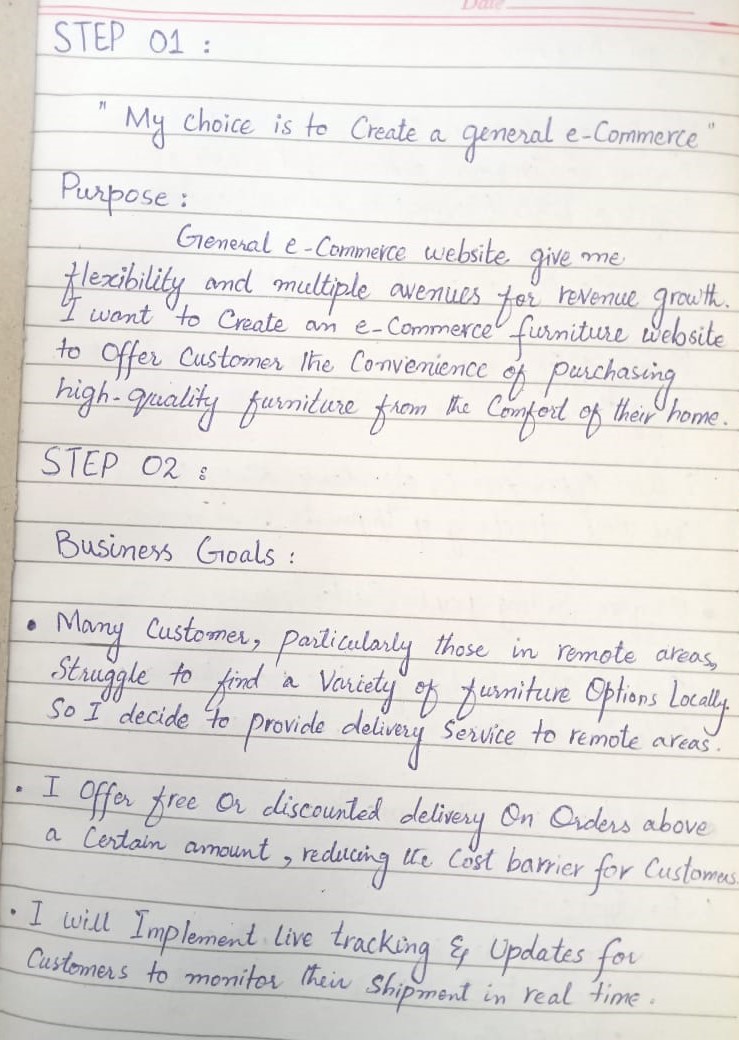 Date
STEP 01 :
" My choice is to Create a general e-Commerce "
Purpose :
General e-Commerce website give me
flexibility and multiple avenues for revenue growth.
I want to Create an e-Commerce furniture website
to Offer Customer the Convenience of purchasing
high-quality furniture from the Comfort of their home.
STEP 02 :
Business Goals :
• Many Customer, particularly those in remote areas,
Struggle to find a Variety of furniture Options Locally.
So I decide to provide delivery Service to remote areas.
• I Offer free Or discounted delivery On Orders above
a Certain amount, reducing the Cost barrier for Customers.
• I will Implement Live tracking & Updates for
Customers to monitor their Shipment in real time.